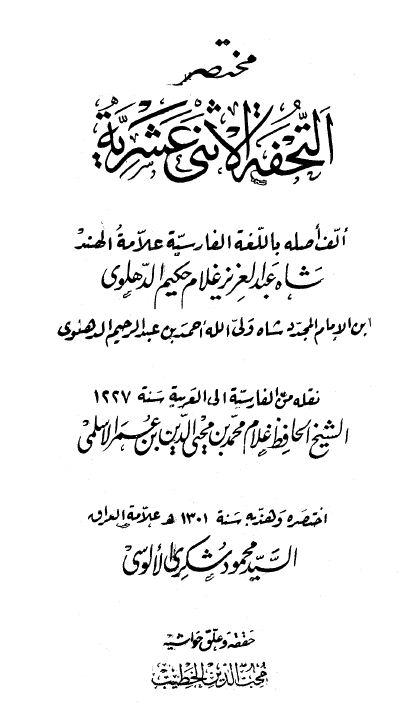 مختصر
التُّحفة الاثنى عَشَريَّة
ألّف أصله باللغة الفارسيّة علّامةُ الهند
شاه عبد العزيز غلام حكيم الدّهلوى
ابن الإمام المجدد شاه ولىّ الله أحمد بن عبد الرحيم الدهلوى
نقله من الفارسيّة الى العربية سَنة ١٢٢٧
الشيخ الحافظ غلام محمد بن محيى الدّين بن عُمَر الأسلمى
اختصَره وَهذّبه سَنة ١٣٠١ هـ علاّمة العراق
السَّيّد محمود شكرى الألوسى
حققه وعلّق حَواشيه
محبّ الدّين الخطيب